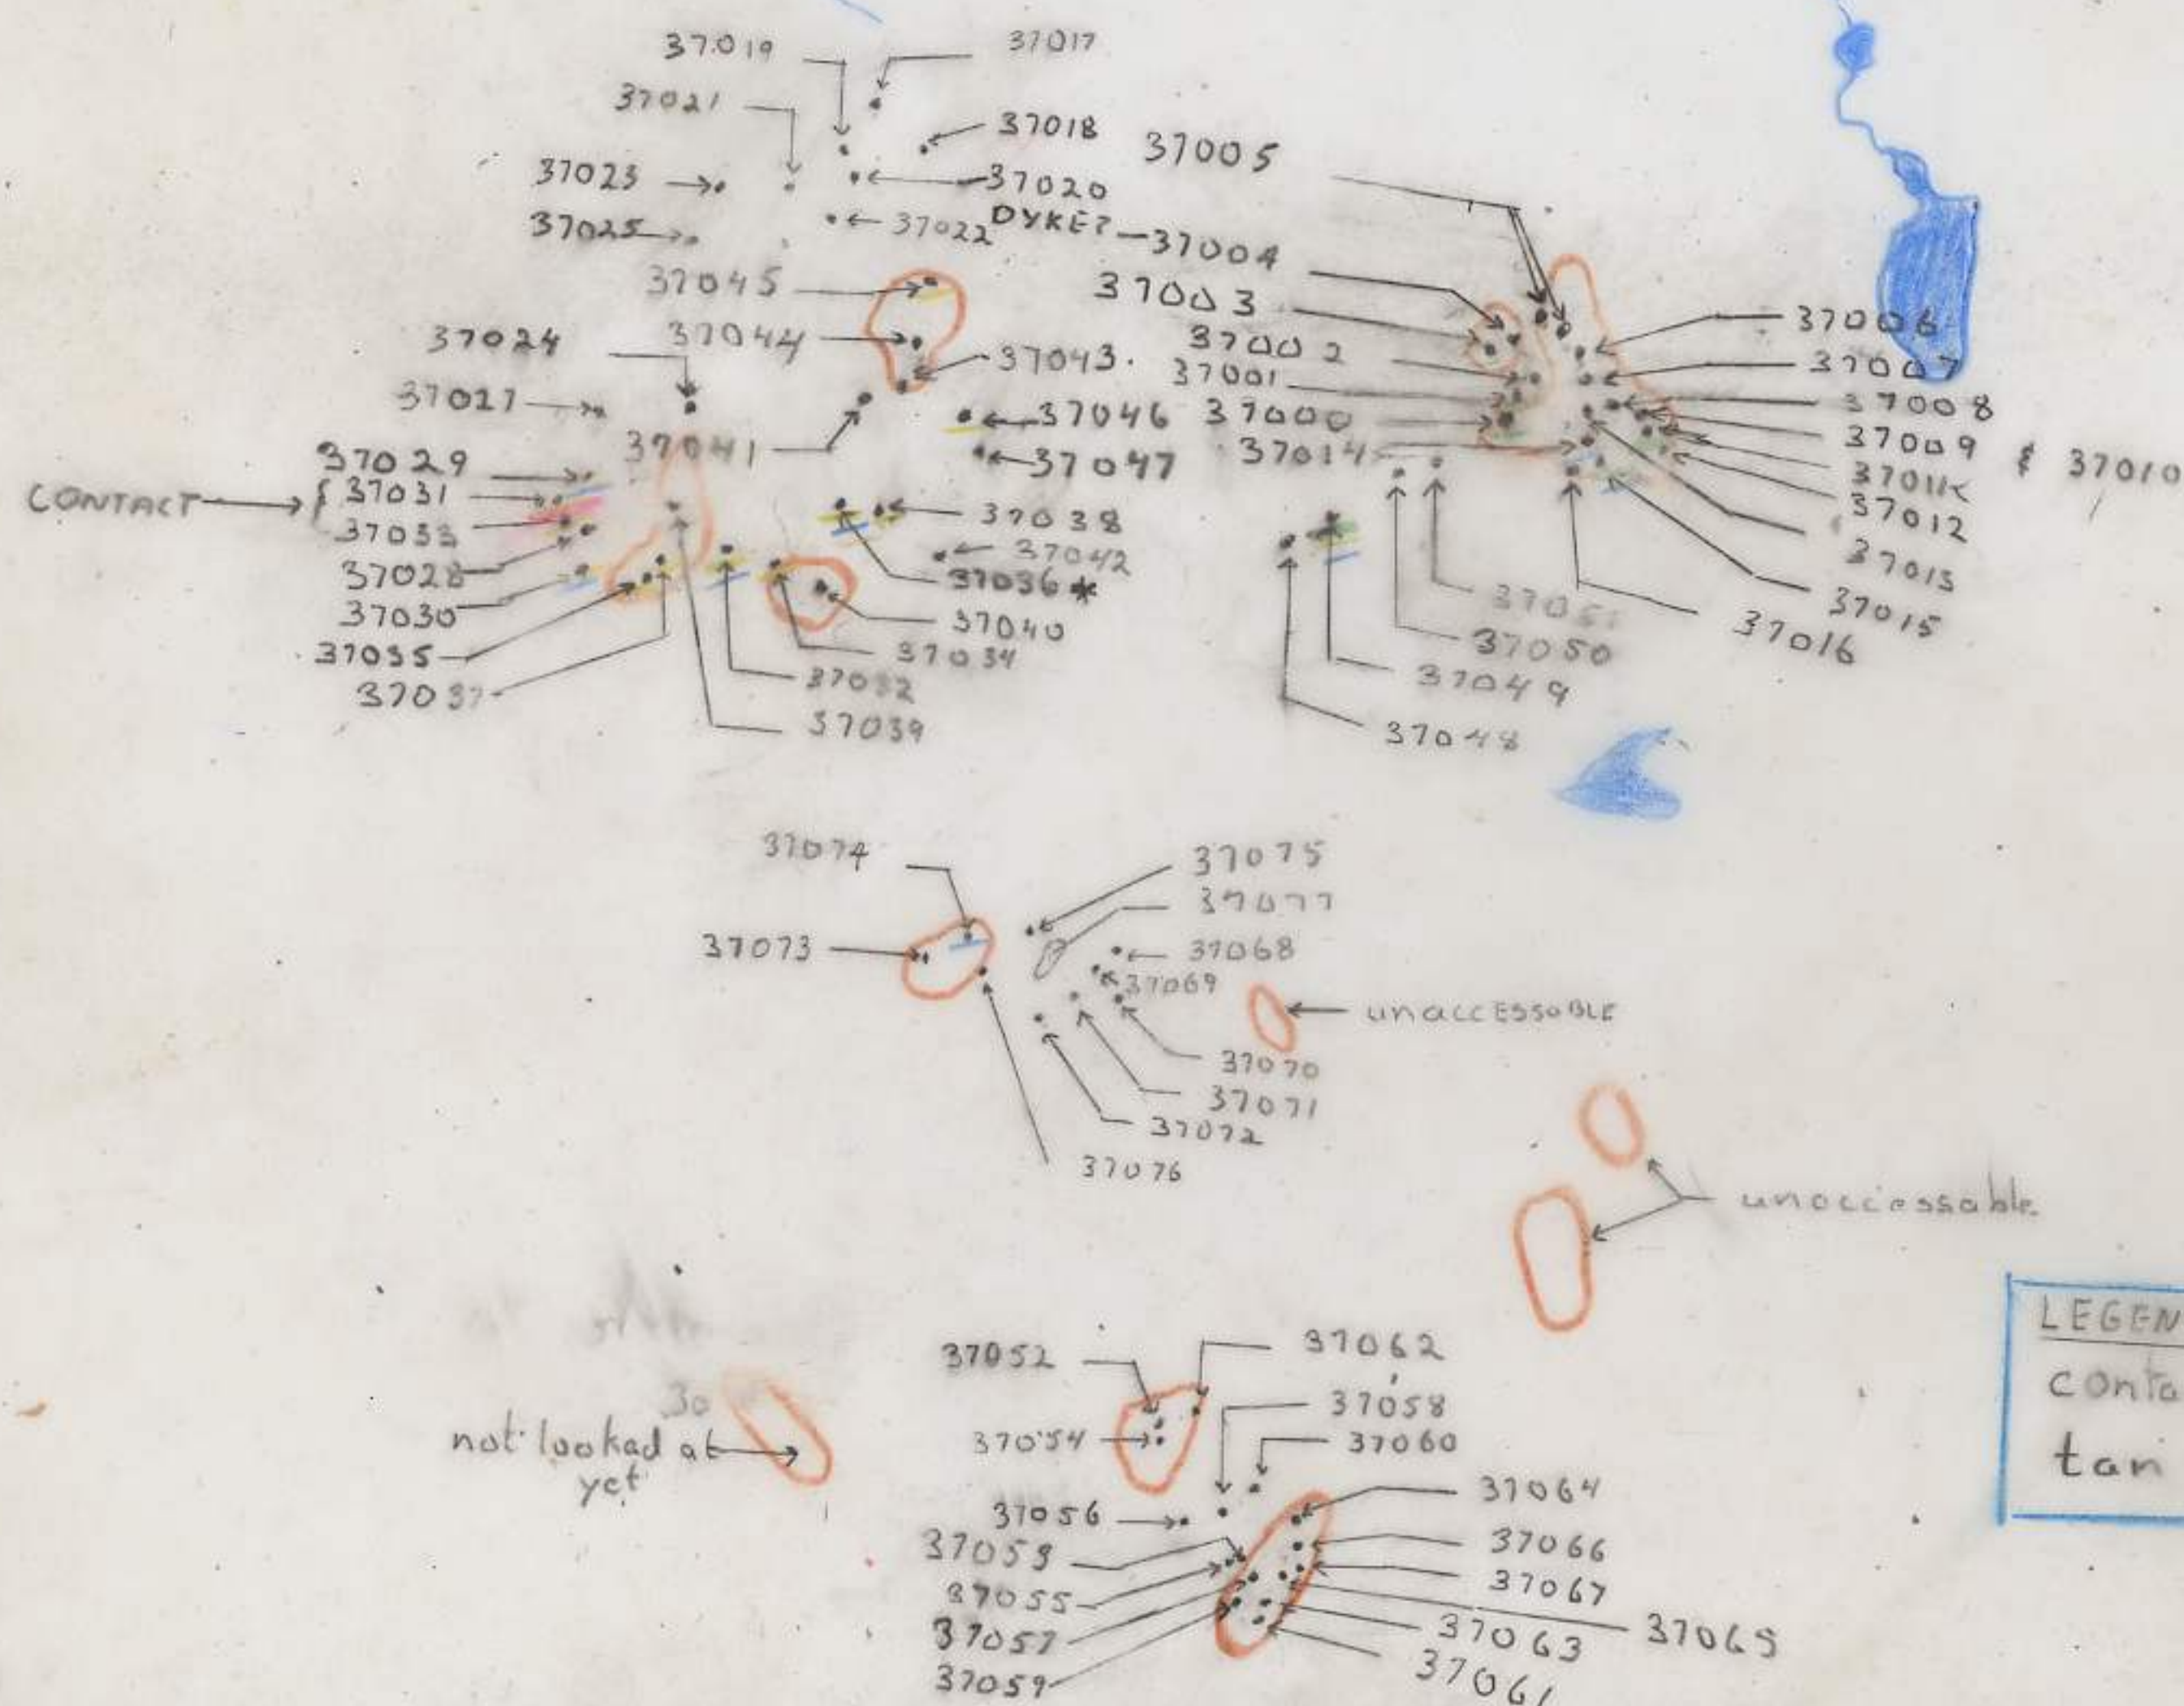 37019
37017
37021
37018
37005
37023
37020
37025
37022
DYKE?
37004
37045
37003
37006
37024
37044
37002
37043.
37001
37007
37027
37046
37000
37008
37041
37047
37014
37009 & 37010
37029
CONTACT
37031
37012
37033
37038
37013
37028
37042
37036*
37015
37030
37040
37051
37016
37035
37034
37050
37037
37032
37049
37039
37048
37074
37075
37077
37073
37068
37069
unaccessoble
37070
37071
37072
37076
unoccessable.
LEGEN
conta
tan
37052
37062
30
37058
not looked at
yet
37054
37060
37064
37056
37066
37053
37067
37055
37063
37065
37057
37061
37059